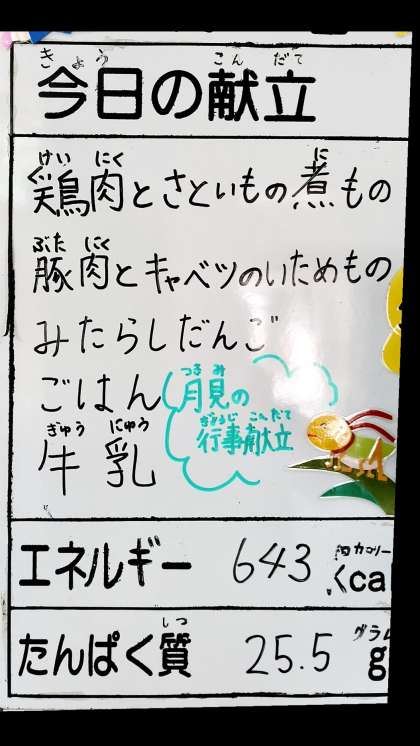 きょう こんだて
今日の献立
けいにく に
鶏肉とさといもの煮もの
ぶたにく
豚肉とキャベツのいためもの
みたらしだんご
ごはん
ぎゅうにゅう
牛乳
つきみ
月見の
ぎょうじこんだて
行事献立
エネルギー 643 カロリー
cal
しつ グラム
たんぱく質 25.5 g